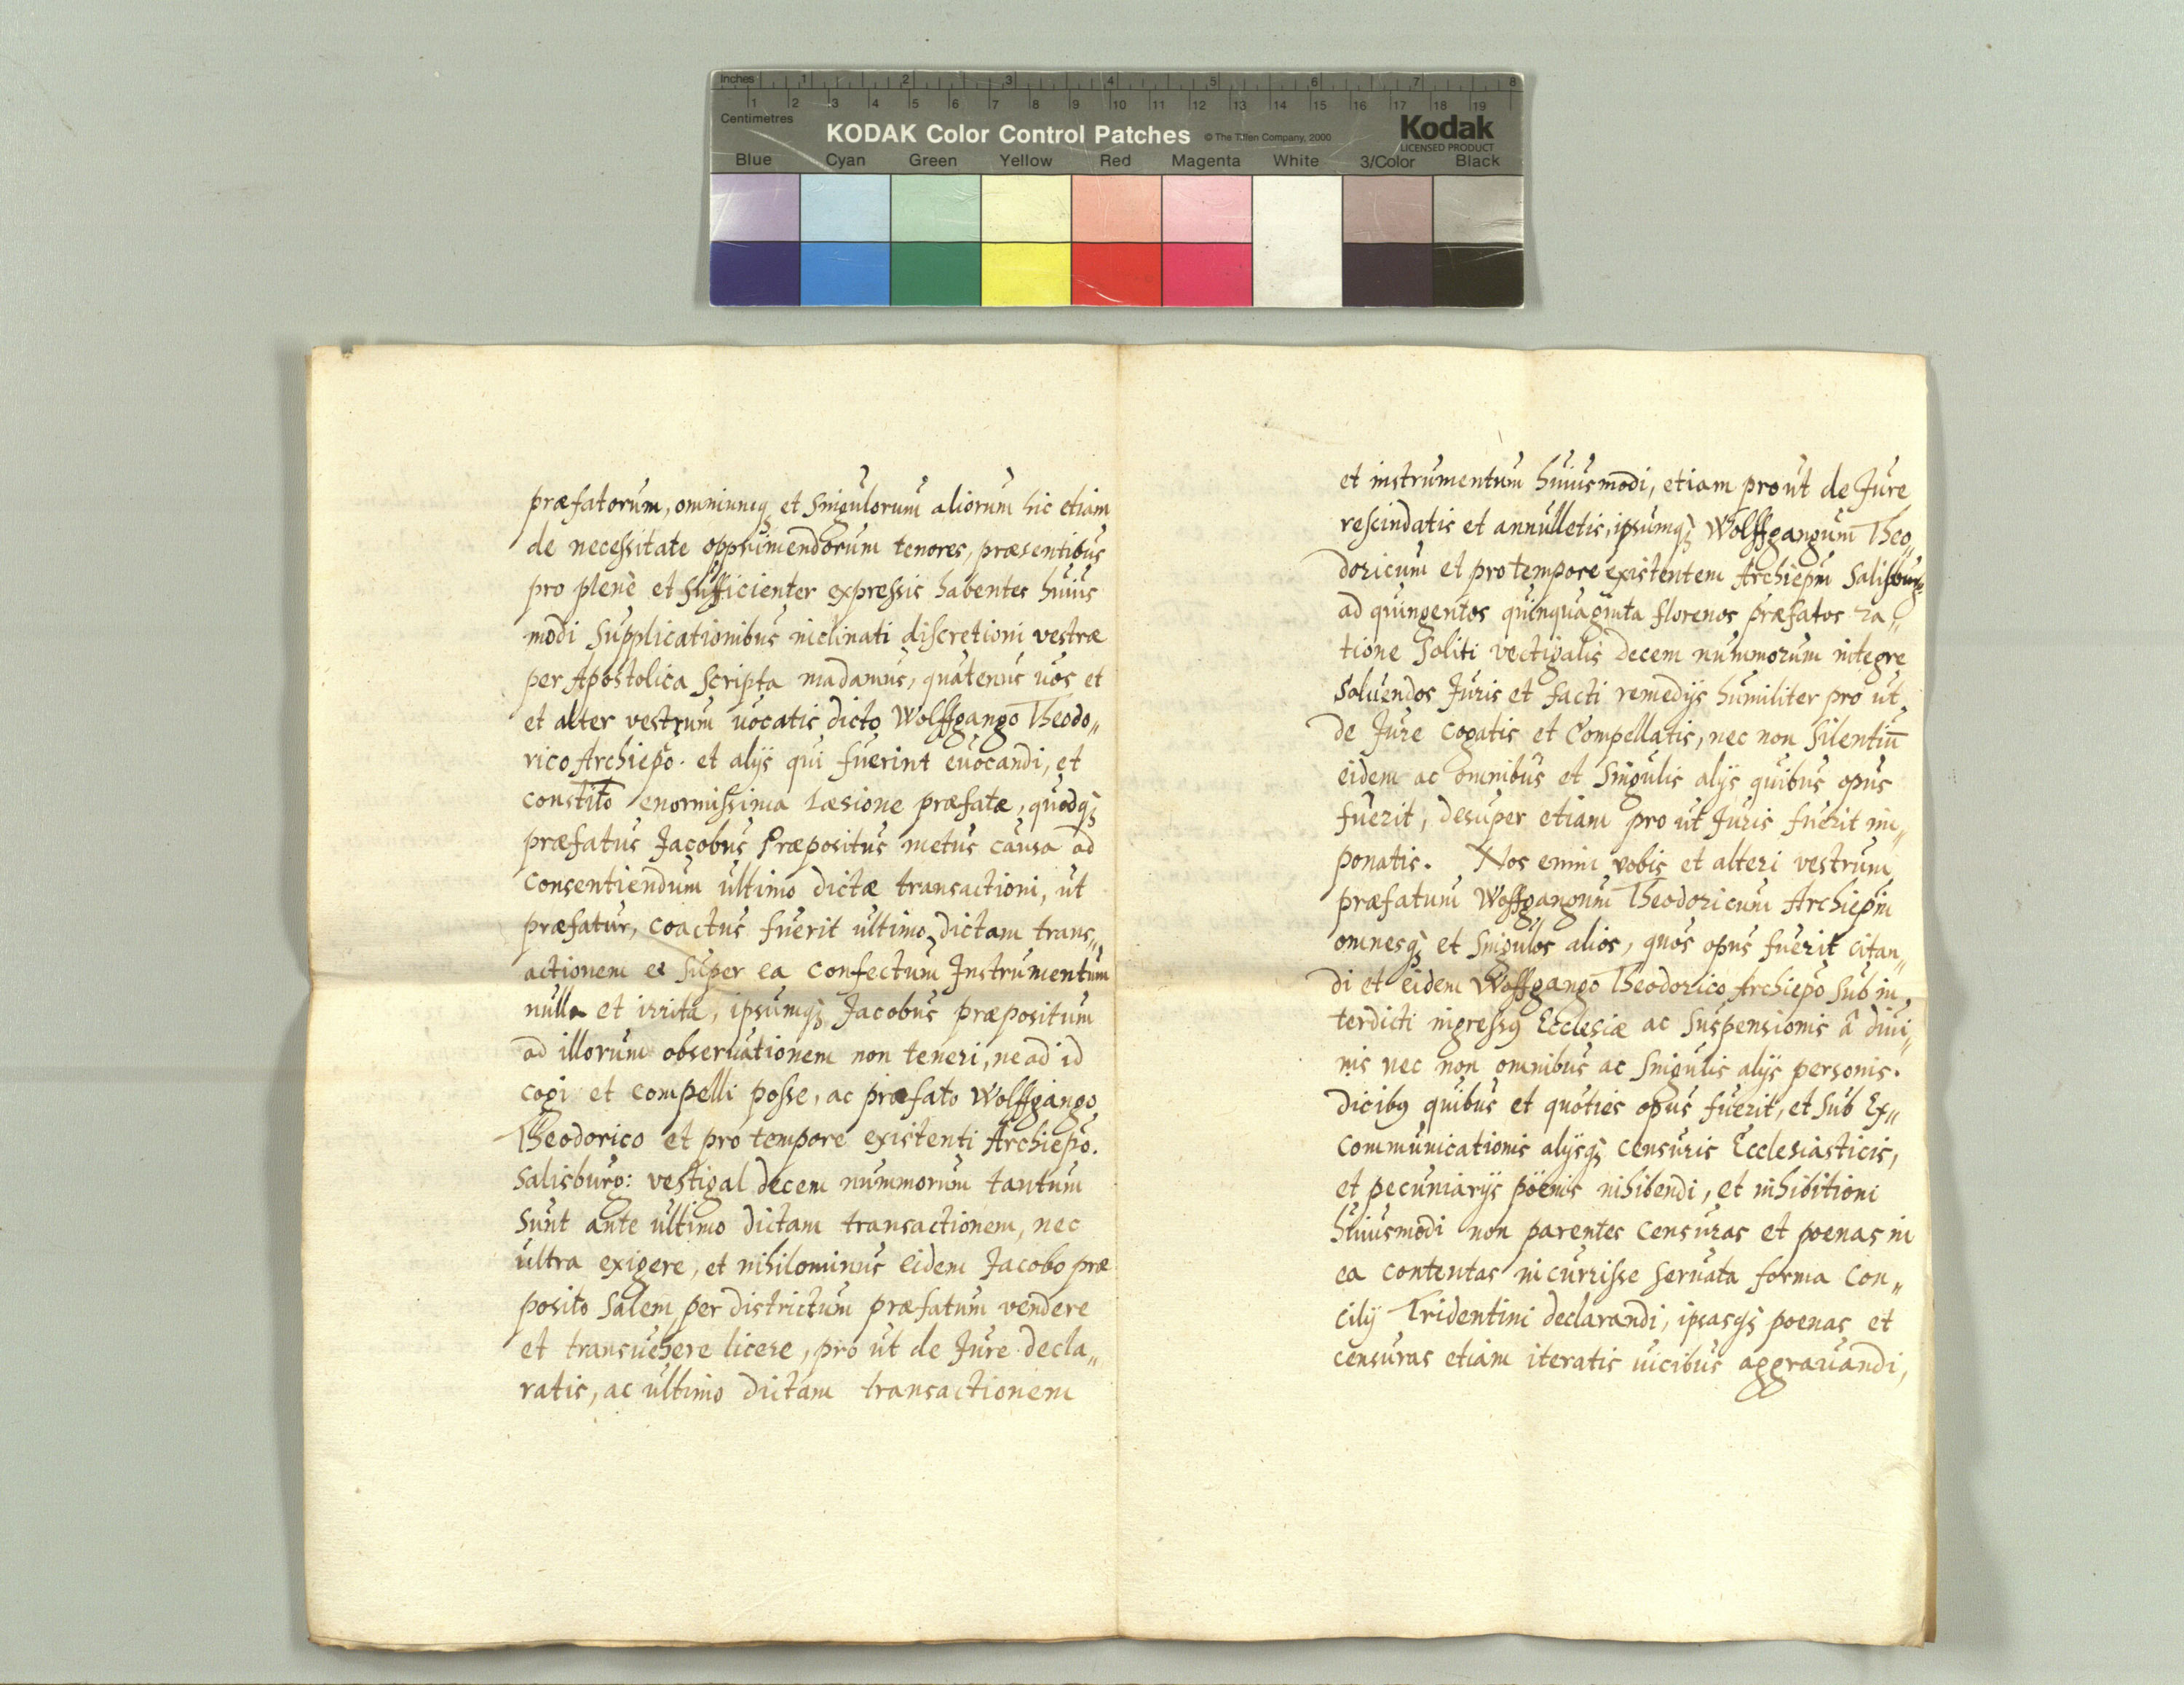 Inches 1 2 3 4 5 6 7 8
1 2 3 4 5 6 7 8 9 10 11 12 13 14 15 16 17 18 19
Centimetres
KODAK Color Control Patches © The Tiffen Company, 2000 Kodak
LICENSED PRODUCT
Blue Cyan Green Yellow Red Magenta White 3/Color Black
præfatorum, omniumq; et singulorum aliorum hic etiam
de necessitate opprimendorum tenores, præsentibus
pro plenè et sufficienter expressis habentes huius
modi supplicationibus inclinati discretioni vestræ
per Apostolica scripta madamus, quatenus uos et
et alter vestrum uocatis dicto Wolffgango Theodo„
rico Archiepõ. et alijs qui fuerint euocandi, et
constito enormissima læsione præfata, quodq;
præfatus Jacobus Præpositus metus causa ad
consentiendum ultimo dictæ transactioni, ut
præfatur, coactus fuerit ultimo dictam trans„
actionem et super ea confectum Instrumentum
nulla et irrita, ipsumq; Jacobus præpositum
ad illorum obseruationem non teneri, ne ad id
cogi et compelli posse, ac præfato Wolffgango
Theodorico et pro tempore existenti Archiepõ.
Salisburg: vestigal decem nummorum tantum
sunt ante ultimo dictam transactionem, nec
ultra exigere, et nihilominus eidem Jacobo præ
posito salem per districtum præfatum vendere
et transuehere licere, pro ut de Jure decla„
ratis, ac ultimo dictam transactionem
et instrumentum huiusmodi, etiam pro ut de Jure
rescindatis et annulletis, ipsumq; Wolffgangum Theo„
doricum et pro tempore existentem Archiepm̃ Salisburg.
ad quingentos quinquaginta florenos præfatos ra„
tione soliti vectigalis decem nummorum integre
soluendos Juris et facti remedijs humiliter pro ut
de Jure cogatis et Compellatis, nec non silentiũ
eidem ac omnibus et singulis alijs quibus opus
fuerit, desuper etiam pro ut Juris fuerit im„
ponatis. Nos enim vobis et alteri vestrum
præfatum Woffgangum Theodoricum Archiepm̃
omnesq; et singulos alios, quos opus fuerit citan„
di et eidem Woffgango Theodorico Archiepõ sub in„
terdicti ingressꝰ Ecclesiæ ac suspensionis â diui„
nis nec non omnibus ac singulis alijs personis.
dicibꝰ quibus et quoties opus fuerit, et sub Ex„
communicationis alijsq; censuris Ecclesiasticis,
et pecuniarijs pöenis inhibendi, et inhibitioni
huiusmodi non parentes censuras et poenas in
ea contentas incurrisse seruata forma Con„
cilij Tridentini declarandi, ipsasq; poenas et
censuras etiam iteratis uicibus aggrauandi,